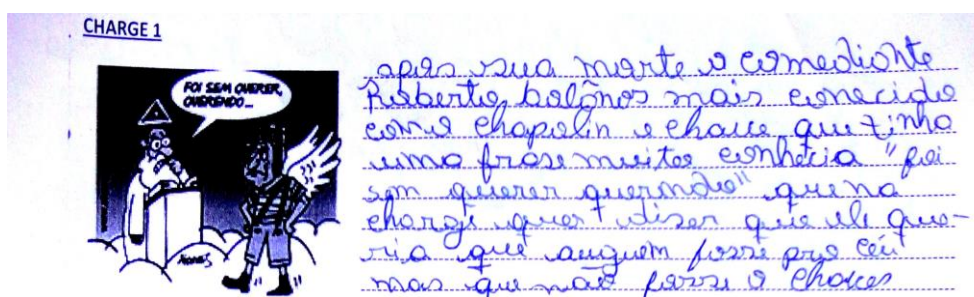 CHARGE 1
FOI SEM QUERER,
QUERENDO...
após sua morte o comediante
Roberto bolânos mais conecido
como chapolin e chave que tinha
uma frase muito conhecia "foi
sem querer querendo" que na
charge quer diser que ele que-
ria que auguem fosse pro céu
mas que não fosse o chaves